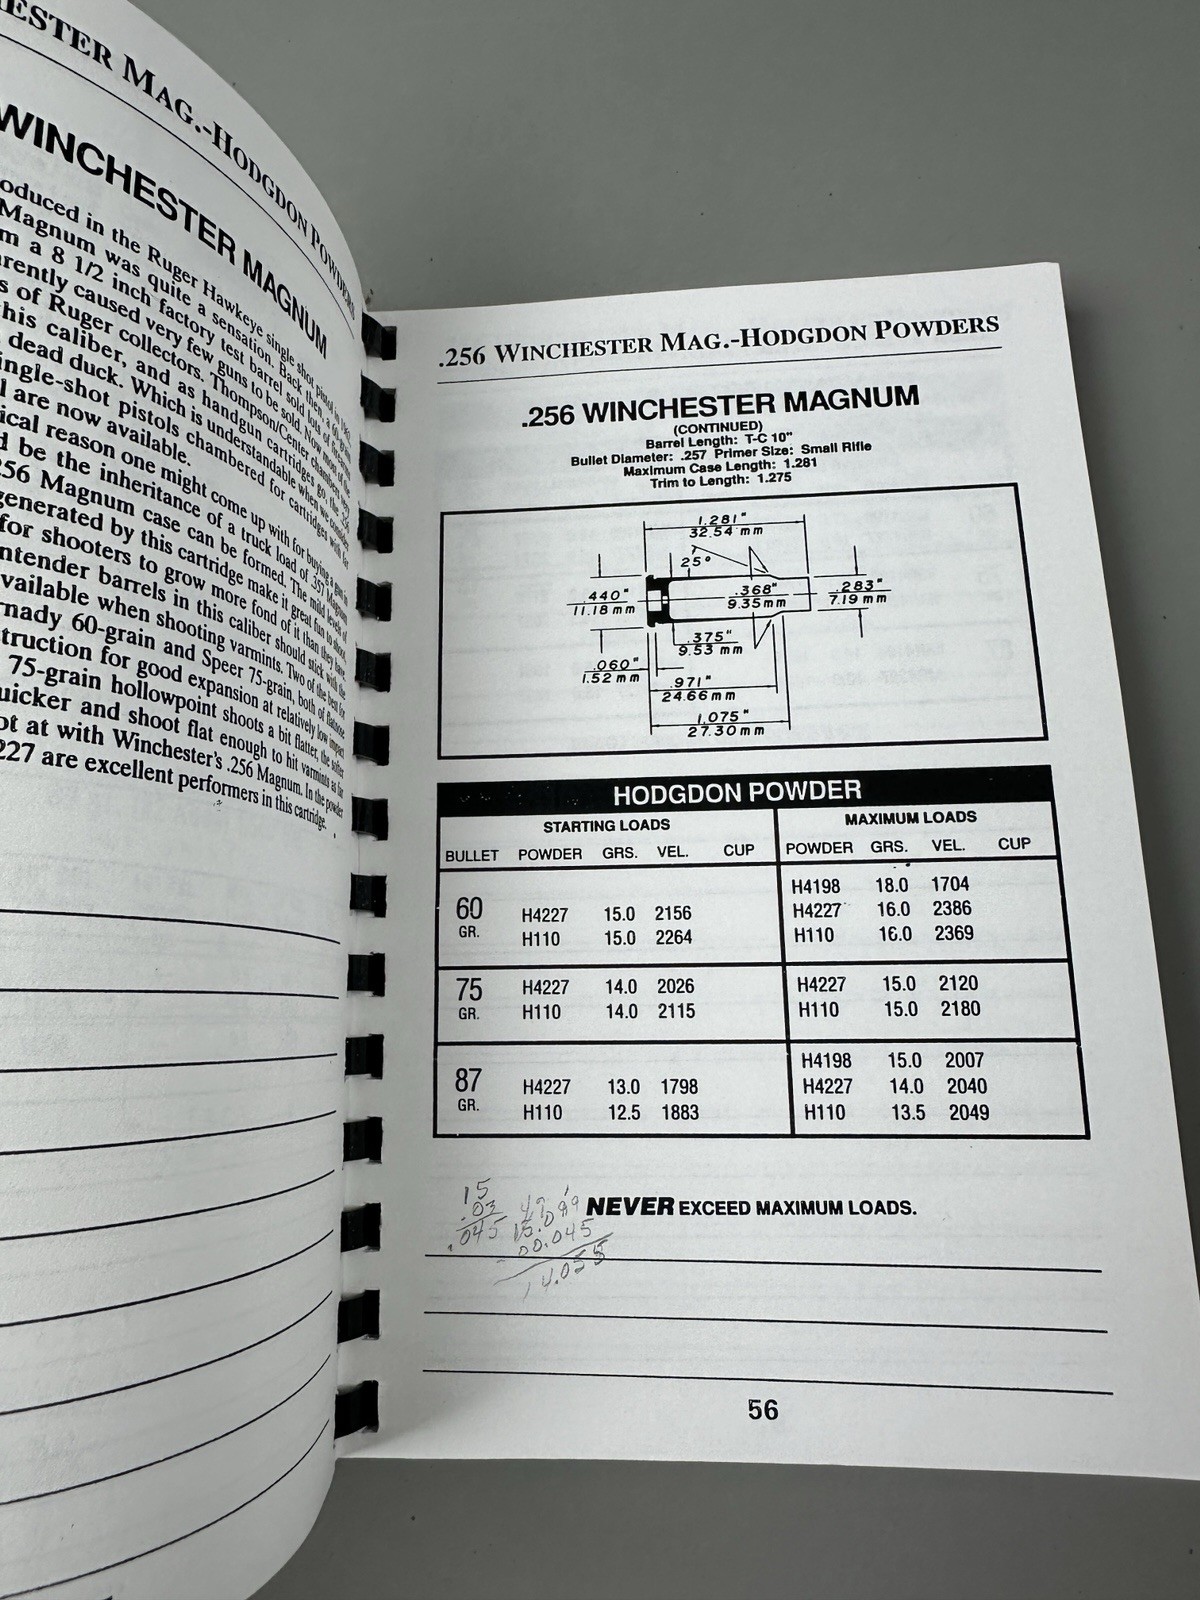 ESTER MAG.-HODGDON POWDERS
WINCHESTER MAGNUM
oduced in the Ruger Hawkeye single shot pistol in
Magnum was quite a sensation. Back then, a 60-grain
m a 8 1/2 inch factory test barrel sold lots of
rently caused very few guns to be sold. Now most of the
s of Ruger collectors. Thompson/Center chambers very
his caliber, and as handgun cartridges go, the .256
dead duck. Which is understandable when we consider
ingle-shot pistols chambered for cartridges with far
l are now available.
ical reason one might come up with for buying a gun in
d be the inheritance of a truck load of .357 Magnum
256 Magnum case can be formed. The mild levels of
generated by this cartridge make it great fun to shoot
for shooters to grow more fond of it than they have.
ntender barrels in this caliber should stick with the
vailable when shooting varmints. Two of the best for
nady 60-grain and Speer 75-grain, both of flatnose
truction for good expansion at relatively low impact
75-grain hollowpoint shoots a bit flatter, the softer
uicker and shoot flat enough to hit varmints as far
ot at with Winchester's .256 Magnum. In the powder
227 are excellent performers in this cartridge.
.256 WINCHESTER MAG.-HODGDON POWDERS
.256 WINCHESTER MAGNUM
(CONTINUED)
Barrel Length: T-C 10"
Bullet Diameter: .257 Primer Size: Small Rifle
Maximum Case Length: 1.281
Trim to Length: 1.275
1.281"
32.54 mm
25°
.440"
11.18 mm
.368"
9.35 mm
.283"
7.19 mm
.375"
9.53 mm
.060"
1.52 mm
.971"
24.66 mm
1.075"
27.30 mm
HODGDON POWDER
STARTING LOADS MAXIMUM LOADS
BULLET POWDER GRS. VEL. CUP POWDER GRS. VEL. CUP
H4198 18.0 1704
60 GR. H4227 15.0 2156 H4227 16.0 2386
H110 15.0 2264 H110 16.0 2369
75 GR. H4227 14.0 2026 H4227 15.0 2120
H110 14.0 2115 H110 15.0 2180
H4198 15.0 2007
87 GR. H4227 13.0 1798 H4227 14.0 2040
H110 12.5 1883 H110 13.5 2049
NEVER EXCEED MAXIMUM LOADS.
15
.03
.045
00.045
56